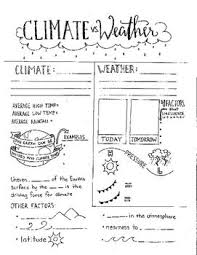 CLIMATE vs Weather
CLIMATE:
WEATHER:
AVERAGE HIGH TEMP=
AVERAGE LOW TEMP=
AVERAGE RAINFALL=
EXAMPLES
FACTORS
TODAY
TOMORROW
PRESSURE
Uneven of the Earth's
surface by the is the
driving force for climate
OTHER FACTORS
in the atmosphere
nearness to
latitude